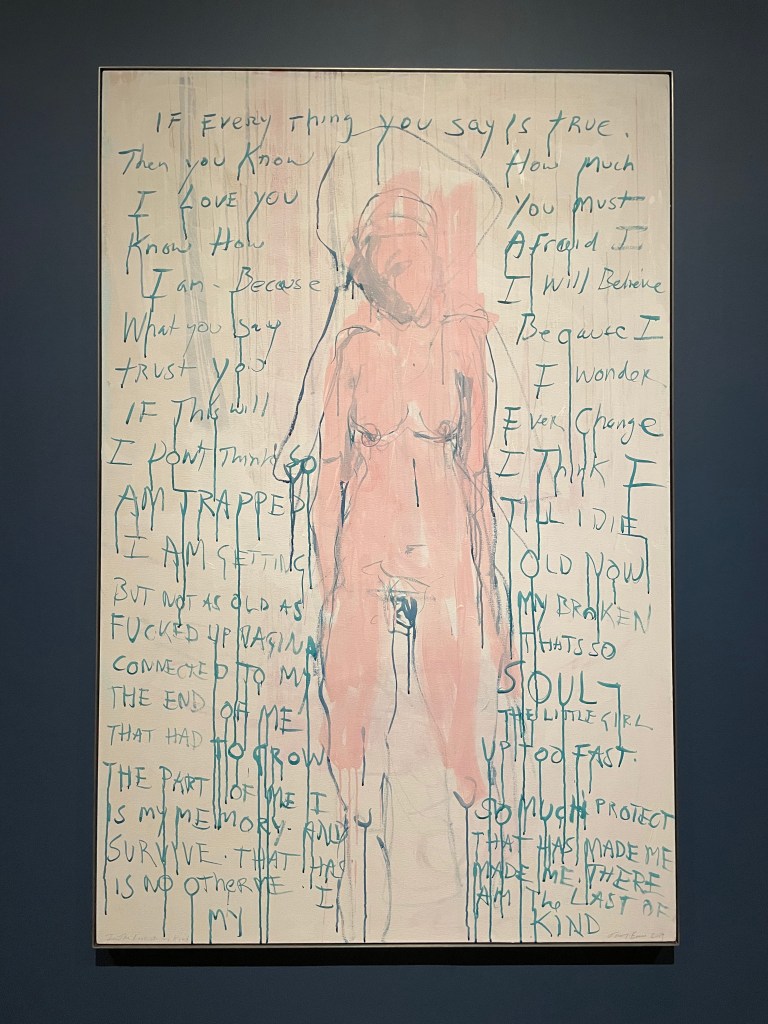 IF Every Thing you say Is true.
Then you Know How much
I Love you You must
Know How Afraid I
I am - Because I Will Believe
What you say Because I
trust you I wonder
IF This will Ever Change
I Dont Think so I Think I
AM TRAPPED TILL I DIE
I AM GETTING OLD NOW
BUT NOT AS OLD AS MY BROKEN
FUCKED UP VAGINA THATS SO
CONNECTED TO MY SOUL -
THE END OF ME THE LITTLE GIRL
THAT HAD TO GROW UP TOO FAST.
THE PART OF ME I SO MUCH PROTECT
IS MY MEMORY. AND THAT HAS MADE ME
SURVIVE. THAT HAS MADE ME. THERE
IS NO OTher ME. I AM The LAST OF
MY KIND